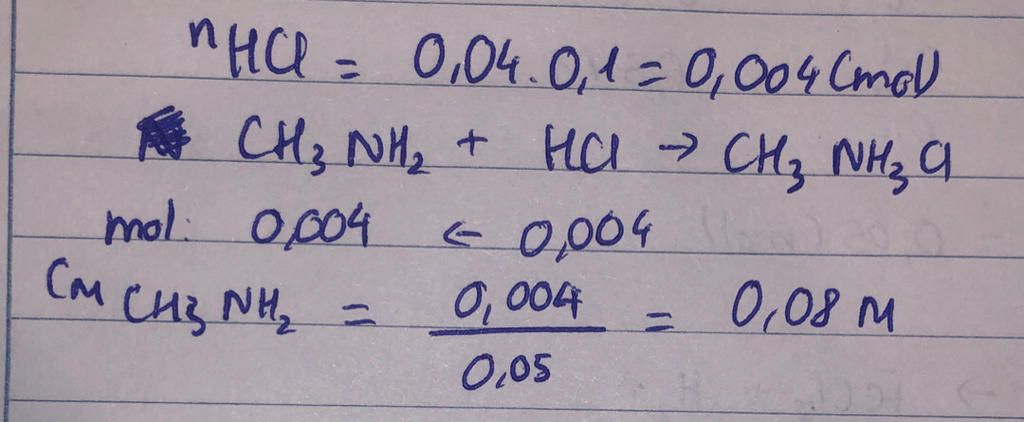 nHCl = 0,04.0,1 = 0,004 (mol)
CH3NH2 + HCl → CH3NH3Cl
mol: 0,004 ← 0,004
CM CH3NH2 = 0,004 / 0,05 = 0,08 M